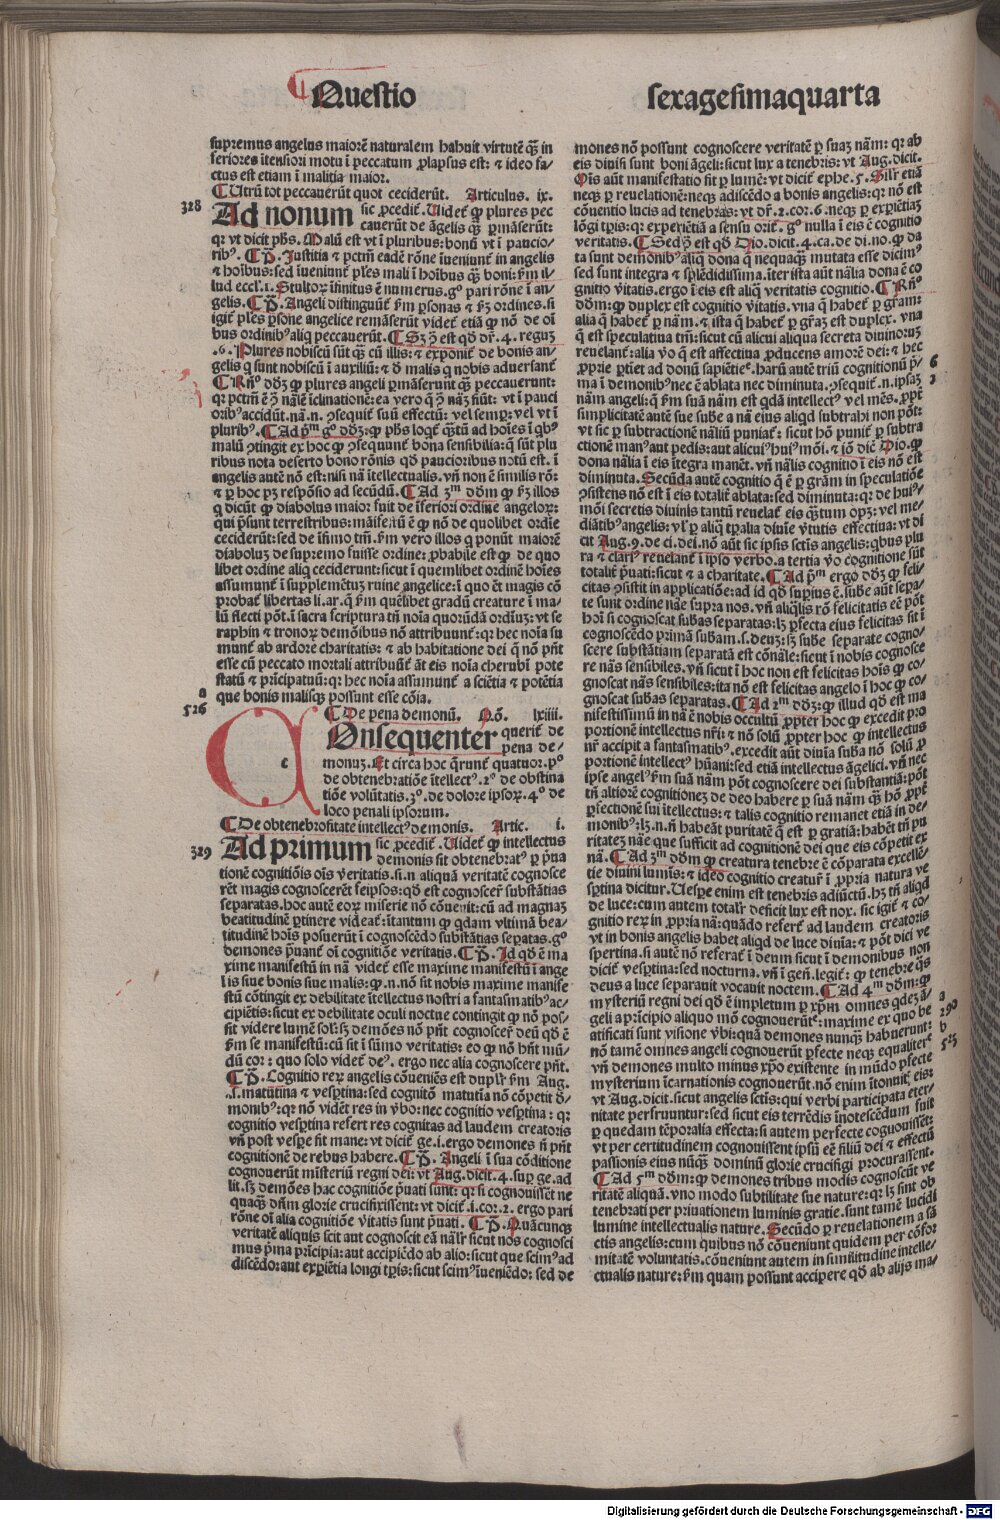 Questio
sexagesimaquarta
supremus angelus maiorē naturalem habuit virtutē qᷓ in
feriores ītensiori motu ī peccatum prolapsus est: ⁊ ideo fa/
ctus est etiam ī malitia maior.
¶ Utrū tot peccauerūt quot ceciderūt. Articulus. ix.
328
Ad nonum sic procedit᷑. Uidet᷑ ꝙ plures pec
cauerūt de āgelis qᷓ ꝑmāserūt:
q: vt dicit phs. Malū est vt ī pluribus: bonū vt ī paucio/
ribꝰ. ¶ P̄. Iustitia ⁊ pctm̄ eadē rōne īueniunt in angelis
⁊ hoībus: sed īueniunt᷑ ples mali ī hoībus qᷓ boni: ẜm il/
lud eccl. 1. Stultoꝝ īfinitus ē numerus. gͦ pari rōne ī an/
gelis. ¶ P̄. Angeli distinguūt᷑ ẜm ꝑsonas ⁊ ẜm ordines. si
igit᷑ ples ꝑsone angelice remāserūt videt᷑ etiā ꝙ nō de oī
bus ordinibꝰ aliq peccauerūt. ¶ Sꝫ ꝯ est qď dr̄. 4. regum
.6. Plures nobiscū sūt qᷓ cū illis: ⁊ exponit᷑ de bonis an/
gelis q sunt nobiscū ī auxiliū: ⁊ ď malis q nobis aduersant᷑
¶ Rn̄ᵒ ddꝫ ꝙ plures angeli ꝑmāserunt qᷓ peccauerunt:
q: pctm̄ ē ꝯ nālē īclinationē: ea vero q ꝯ nāꝫ fiūt: vt ī pauci
oribꝰ accidūt. nā. n. ꝯsequit᷑ suū effectū: vel semꝑ: vel vt ī
pluribꝰ. ¶ Ad pᵐ gͦ ddꝫ: ꝙ phs loqt᷑ qᷓtū ad hoīes ī qbꝰ
malū ꝯtingit ex hoc ꝙ ꝯsequunt᷑ bona sensibilia: q sūt plu
ribus nota deserto bono rōnis qď paucioribus notū est. ī
angelis autē nō est: nisi nā ītellectualis. vn̄ non ē similis rō:
⁊ ꝑ hoc pꝫ respōsio ad secūdū. ¶ Ad 3ᵐ dōm ꝙ ẜm illos
q dicūt ꝙ diabolus maior fuit de īferiori ordine angeloꝝ:
qui p̄sunt terrestribus: māifestū ē ꝙ nō de quolibet ordīe
ceciderūt: sed de īfimo tm̄. ẜm vero illos q ponūt maiorē
diaboluꝫ de supremo fuisse ordine: ꝓbabile est ꝙ de quo
libet ordine aliq ceciderunt: sicut ī quemlibet ordinē hoīes
assumunt᷑ ī supplemētuꝫ ruine angelice: ī quo ēt magis cō
probat᷑ libertas li. ar. q ẜm quēlibet gradū creature ī ma/
lū flecti pōt. ī sacra scriptura tn̄ noīa quorūdā ordinuꝫ: vt se
raphin ⁊ tronoꝝ demōibus nō attribuunt᷑: q: hec noīa su
munt᷑ ab ardore charitatis: ⁊ ab habitatione dei q nō pn̄t
esse cū peccato mortali attribuūt᷑ āt eis noīa cherubī pote
statū ⁊ pͥncipatuū: q: hec noīa assumunt᷑ a sciētia ⁊ potētia
que bonis malisꝙ possunt esse cōia.
a
526
¶ De pena demonū. Qō. lxiiii.
Onsequenter querit᷑ de
pena de/
monuꝫ. Et circa hoc qrunt᷑ quatuor. pᵒ
de obtenebratiōe ītellectꝰ. 2ᵒ de obstina
tiōe volūtatis. 3ᵒ. de dolore ipsoꝝ. 4ᵒ de
loco penali ipsorum.
c
¶ De obtenebrositate intellectꝰ demonis. Artic. i.
329
Ad primum sic procedit᷑. Uidet᷑ ꝙ intellectus
demonis sit obtenebratꝰ ꝑ p̄ua
tionē cognitiōis oīs veritatis. si. n aliquā veritatē cognosce
rēt magis cognoscerēt seipsos: qď est cognoscer̄ substātias
separatas. hoc autē eoꝝ miserie nō cōuenit: cū ad magnaꝫ
beatitudinē ꝑtinere videat᷑: ītantum ꝙ qdam vltimā bea/
titudinē hoīs posuerūt ī cognoscēdo substātias seꝑatas. gͦ
demones p̄uant᷑ oī cognitiōe veritatis. ¶ P̄. Id qď ē ma
xime manifestū in nā videt᷑ esse maxime manifestū ī ange
lis siue bonis siue malis: ꝙ. n. nō sit nobis maxime manife
stū cōtingit ex debilitate ītellectus nostri a fantasmatibꝰ ac/
cipiētis: sicut ex debilitate oculi noctue contingit ꝙ nō pos/
sit videre lumē sol: sꝫ demōes nō pn̄t cognoscer̄ deū qď ē
ẜm se manifestū: cū sit ī sūmo veritatis: eo ꝙ nō hn̄t mū/
dū cor: quo solo videt᷑ deꝰ. ergo nec alia cognoscere pn̄t.
¶ P̄. Cognitio reꝝ angelis cōueniēs est duplr̄ ẜm Aug.
.s. matutina ⁊ vesꝑtina: sed cognitō matutīa nō cōpetit ď/
monibꝰ: q: nō vidēt res in vbo: nec cognitio vesꝑtina: q:
cognitio vesꝑtina refert res cognitas ad laudem creatoris
vn̄ post vesꝑe fit mane: vt dicit᷑ ge. i. ergo demones n̄ pn̄t
cognitionē de rebus habere. ¶ P̄. Angeli ī sua cōditione
cognouerūt mīsteriū regni dei: vt Aug. dicit. 4. suꝑ ge. ad
lit. sꝫ demōes hac cognitiōe p̄uati sunt: q: si cognouissēt ne
quaqᷓ dn̄m glorie crucifixissent: vt dicit᷑. i. cor. 2. ergo pari
rōne oī alia cognitiōe vitatis sunt p̄uati. ¶ P̄. Quācunqꝫ
veritatē aliquis scit aut cognoscit eā nālr̄ sicut nos cognosci
mus pͥma pͥncipia: aut accipiēdo ab alio: sicut que scimꝰ ad
discēdo: aut exꝑiētia longi tꝑis: sicut scimꝰ īueniēdo: sed de
mones nō possunt cognoscere veritatē ꝑ suaꝫ nām: q: ab
eis diuisi sunt boni āgeli: sicut lux a tenebris: vt Aug. dicit.
Oīs aūt manifestatio fit ꝑ lumē: vt dicit᷑ ephe. 5. Silr̄ etiā
neqꝫ ꝑ reuelationē: neqꝫ adiscēdo a bonis angelis: q: nō est
cōuentio lucis ad tenebras: vt dr̄. 2. cor. 6. neqꝫ ꝑ exꝑiētiaꝫ
lōgi tꝑis: q: exꝑexiētiā a sensu orit᷑. gͦ nulla ī eis ē cognitio
veritatis. ¶ Sedꝯ est qď Dio. dicit. 4. ca. de di. no. ꝙ da
ta sunt demonibꝰ aliq dona q nequaqᷓ mutata esse dicimꝰ
sed sunt integra ⁊ splēdidissima. īter ista aūt nālia dona ē co
gnitio vitatis. ergo ī eis est aliq veritatis cognitio. ¶ Rn̄ᵒ
dōm: ꝙ duplex est cognitio vitatis. vna q habet᷑ ꝑ gr̄am:
alia q habet᷑ ꝑ nām. ⁊ ista q habet᷑ ꝑ gr̄aꝫ est duplex. vna
q est speculatiua tm̄: sicut cū alicui aliqua secreta diuinoruꝫ
reuelant᷑: alia vo q est affectiua ꝓducens amorē dei: ⁊ hec
ꝓprie ꝑtiet ad donū sapiētieˢ. harū autē triū cognitionū p̄/
ma ī demonibꝰ nec ē ablata nec diminuta. ꝯsequit᷑. n. ipsaꝫ
nām angeli: q ẜm suā nām est qdā intellectꝰ vel mēs. ꝓpt̄
simplicitatē autē sue sube a nā eius aliqd subtrahi non pōt:
vt sic ꝑ subtractionē nāliū puniat᷑: sicut hō punit᷑ ꝑ subtra
ctionē manꝰ aut pedis: aut alicuiꝰ huiꝰ mōi. ⁊ iō dic Dio. ꝙ
dona nālia ī eis ītegra manēt. vn̄ nālis cognitio ī eis nō est
diminuta. Secūda autē cognitio q ē ꝑ gr̄am in speculatiōe
ꝯsistens nō est ī eis totalit᷑ ablata: sed diminuta: q: de huiꝰ/
mōi secretis diuinis tantū reuelat᷑ eis qᷓtum opꝫ: vel me/
diātibꝰ angelis: vl̓ ꝑ aliq tꝑalia diuīe vtutis effectiua: vt di
cit Aug. 9. de ci. dei. nō aūt sic ipsis sctīs angelis: qbus plu
ra ⁊ clariꝰ reuelant᷑ ī ipso verbo. a tertia vo cognitione sūt
totalit᷑ p̄uati: sicut ⁊ a charitate. ¶ Ad pᵐ ergo ddꝫ ꝙ feli/
citas ꝯsistit in applicatiōe: ad id qď suꝑius ē. sube aūt sepa/
te sunt ordine nāe supra nos. vn̄ aliqlis rō felicitatis eē pōt
hoī si cognoscat subas separatas: lꝫ ꝑfecta eius felicitas sit ī
cognoscēdo primā subam. s. deuꝫ: sꝫ sube separate cogno/
scere substātiam separatā est cōnāle: sicut ī nobis cognosce
re nās sensibiles. vn̄ sicut ī hoc non est felicitas hoīs ꝙ co/
gnoscat nās sensibiles: ita nō est felicitas angelo ī hoc ꝙ co/
gnoscat subas separatas. ¶ Ad 2ᵐ ddꝫ: ꝙ illud qď est ma
nifestissimū in nā ē nobis occultū ꝓpter hoc ꝙ excedit pro
portionē intellectus nr̄i: ⁊ nō solū ꝓpter hoc ꝙ intellectus
nr̄ accipit a fantasmatibꝰ. excedit aūt diuīa suba nō solū ꝓ
portionē intellectꝰ hūani: sed etiā intellectus āgelici. vn̄ nec
ipse angelꝰ ẜm suā nām pōt cognoscere dei substantiā: pōt
tn̄ altiorē cognitioneꝫ de deo habere ꝑ suā nām qᷓ hō ꝓpt̄
ꝑfectionē sui ītellectus: ⁊ talis cognitio remanet etiā in de/
monibꝰ: lꝫ. n. n̄ habeāt puritatē q est ꝑ gratiā: habēt tn̄ pu
ritateꝫ nāe que sufficit ad cognitionē dei que eis cōpetit ex
nā. ¶ Ad 3ᵐ dōm ꝙ creatura tenebre ē cōparata excellē/
tie diuini lumīs: ⁊ ideo cognitio creatur̄ ī ꝓpria natura ve
sꝑtina dicitur. Uesꝑe enim est tenebris adiūctū. hꝫ tn̄ aliqd
de luce: cum autem totalr̄ deficit lux est nox. sic igit᷑ ⁊ co/
gnitio reꝝ in ꝓpria nā: quādo refert᷑ ad laudem creatoris
vt in bonis angelis habet aliqd de luce diuīa: ⁊ pōt dici ve
sꝑertina. si autē nō referat᷑ ī deum sicut ī demonibus non
dicit᷑ vesꝑtina: sed nocturna. vn̄ ī gen̄. legit᷑: ꝙ tenebre qᷓs
deus a luce separauit vocauit noctem. ¶ Ad 4ᵐ dōm: ꝙ
mysteriū regni dei qď ē impletum ꝑ xp̄m omnes qdeꝫ ā/
geli a pͥncipio aliquo mō cognouerūt: maxime ex quo be
atificati sunt visione vbi: quā demones nunqᷓ habuerunt:
nō tamē omnes angeli cognouerūt ꝑfecte neqꝫ equaliter
vn̄ demones multo minus xp̄o existente in mūdo ꝑfecte
mysterium īcarnationis cognouerūt. nō enim ītonuit᷑ eis:
vt Aug. dicit. sicut angelis sctīs: qui verbi participata eter/
nitate ꝑfruuntur: sed sicut eis terrēdis īnotescēdum fuit
ꝑ quedam tēporalia effecta: si autem perfecte cognouissēt:
vt per certitudinem cognouissent ipsū eē filiū dei ⁊ effectū
passionis eius nūqᷓ dominū glorie crucifigi procurassent.
¶ Ad 5ᵐ dōm: ꝙ demones tribus modis cognoscūt ve
ritatē aliquā. vno modo subtilitate sue nature: q: lꝫ sint ob
tenebrati per priuationem luminis gratie. sunt tamē lucidi
lumine intellectualis nature. Secūdo ꝑ reuelationem a sā
ctis angelis: cum quibus nō cōueniunt quidem per cōfor
mitatē voluntatis. cōueniunt autem in similitudine intelle/
ctualis nature: ẜm quam possunt accipere qď ab alijs ma/
6
3
a
290
b
523
Digitalisierung gefördert durch die Deutsche Forschungsgemeinschaft - DFG